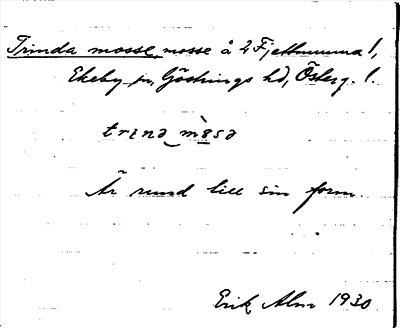 Trinda mosse, mosse å 2 Fjettmunna!,
Ekeby sn, Göstrings hd, Österg. l.
trɪnə‿mo̱sə
Är rund till sin form.
Erik Alm 1930